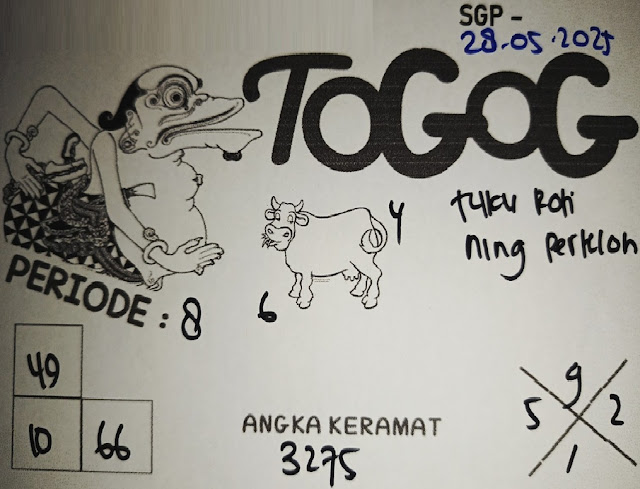 SGP -
28-05-2025
TOGOG
4
tuku Roti
ning perkloh
6
PERIODE : 8
49
10 66
ANGKA KERAMAT
3275
9
5 2
1